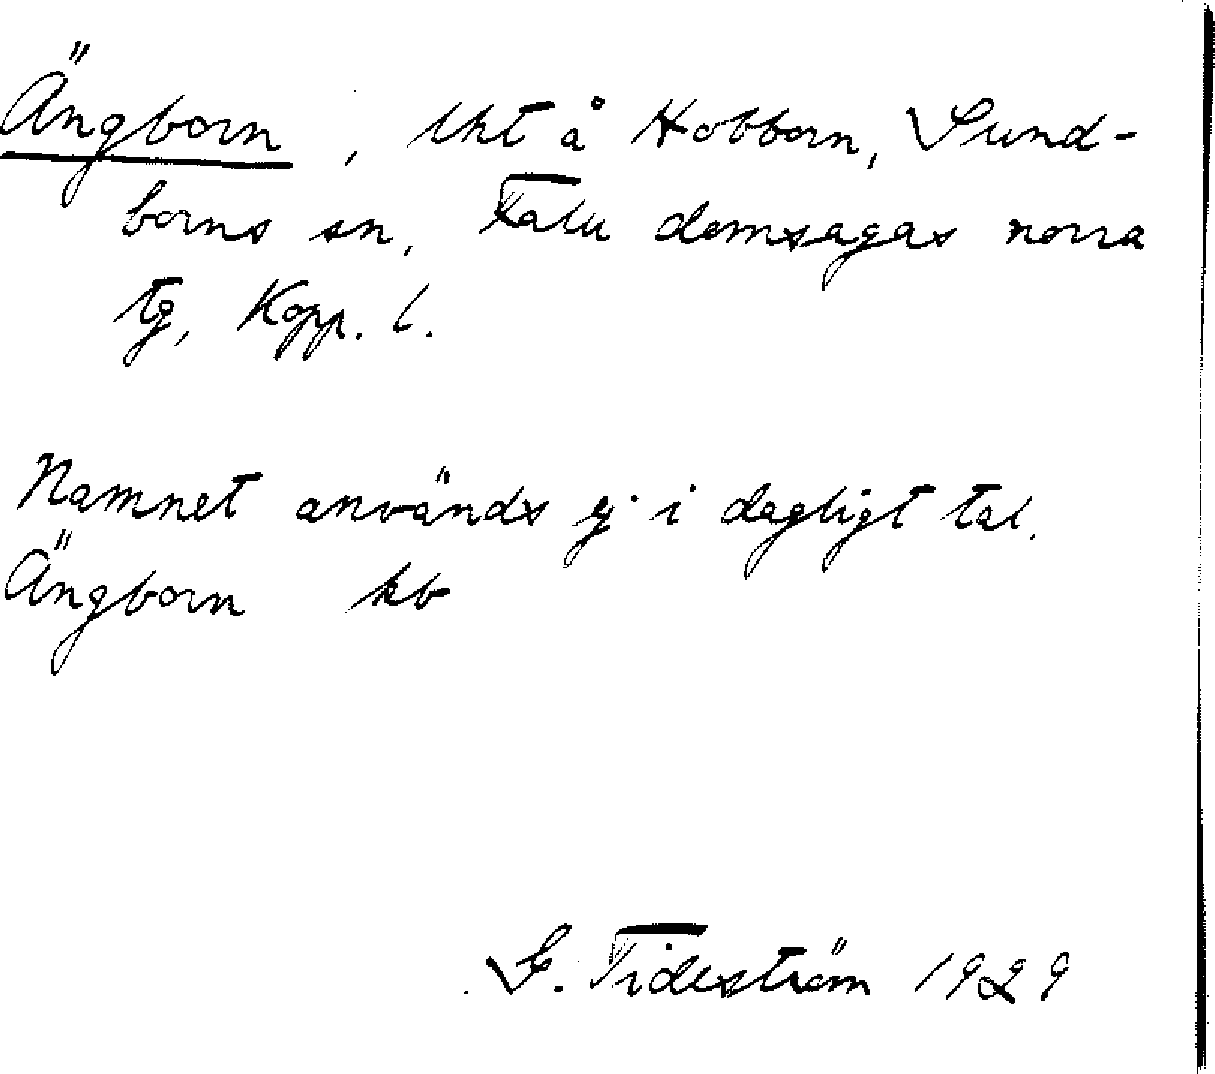 Ängborn, lht å Hobborn, Sund-
borns sn, Falu domsagas norra
tg, Kopp. l.
Namnet används ej i dagligt tal.
Ängborn kb
G. Tideström 1929